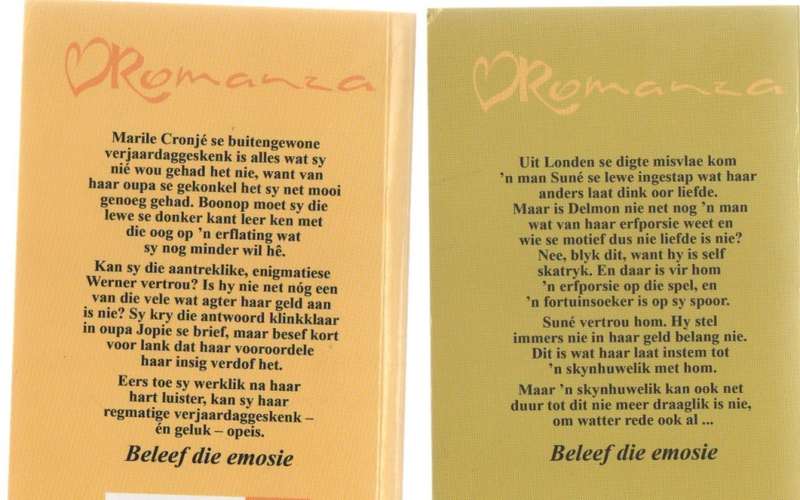 Romanza
Marile Cronjé se buitengewone
verjaardaggeskenk is alles wat sy
nié wou gehad het nie, want van
haar oupa se gekonkel het sy net mooi
genoeg gehad. Boonop moet sy die
lewe se donker kant leer ken met
die oog op ’n erflating wat
sy nog minder wil hê.
Kan sy die aantreklike, enigmatiese
Werner vertrou? Is hy nie net nóg een
van die vele wat agter haar geld aan
is nie? Sy kry die antwoord klinkklaar
in oupa Jopie se brief, maar besef kort
voor lank dat haar vooroordele
haar insig verdof het.
Eers toe sy werklik na haar
hart luister, kan sy haar
regmatige verjaardaggeskenk –
én geluk – opeis.
Beleef die emosie
Romanza
Uit Londen se digte misvlae kom
’n man Suné se lewe ingestap wat haar
anders laat dink oor liefde.
Maar is Delmon nie net nog ’n man
wat van haar erfporsie weet en
wie se motief dus nie liefde is nie?
Nee, blyk dit, want hy is self
skatryk. En daar is vir hom
’n erfporsie op die spel, en
’n fortuinsoeker is op sy spoor.
Suné vertrou hom. Hy stel
immers nie in haar geld belang nie.
Dit is wat haar laat instem tot
’n skynhuwelik met hom.
Maar ’n skynhuwelik kan ook net
duur tot dit nie meer draaglik is nie,
om watter rede ook al ...
Beleef die emosie